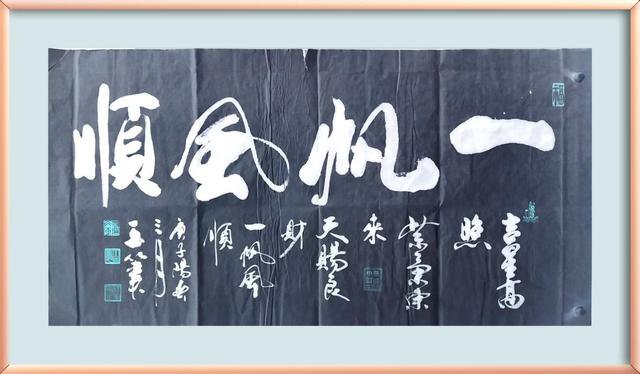 一帆風順
吉星高
照
紫氣東
來
天賜良
財
一帆風
順
庚子陽春
三月